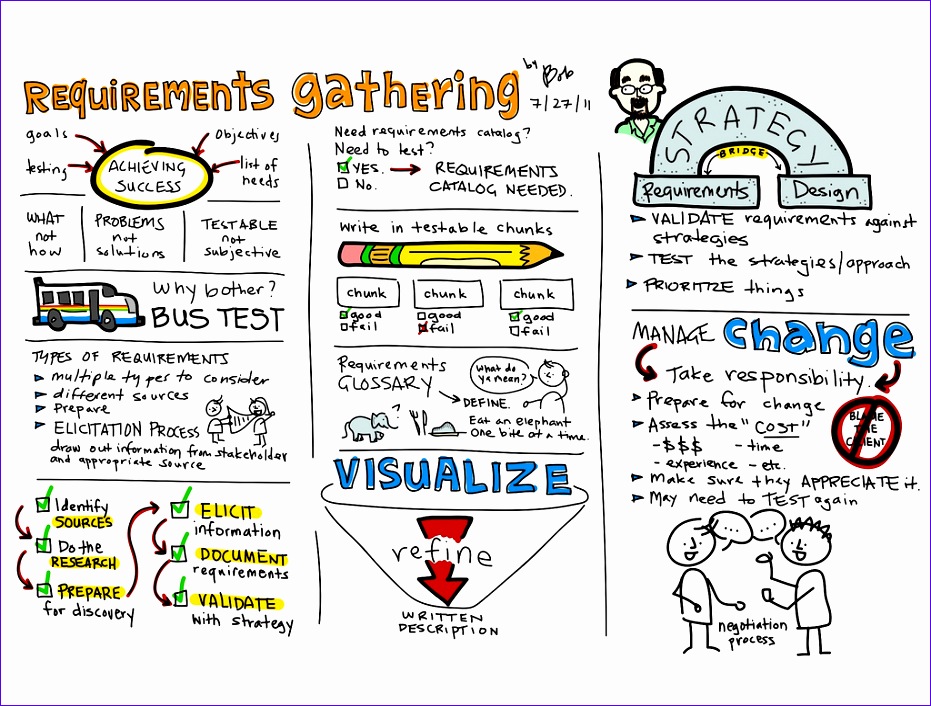 Requirements gathering
by Bob
7/27/11
goals
Objectives
testing
ACHIEVING
SUCCESS
list of
needs
WHAT
not
how
PROBLEMS
not
solutions
TESTABLE
not
subjective
Why bother?
BUS TEST
TYPES OF REQUIREMENTS
multiple types to consider
different sources
Prepare
ELICITATION PROCESS
draw out information from stakeholder
and appropriate source
Identify
SOURCES
Do the
RESEARCH
PREPARE
for discovery
ELICIT
information
DOCUMENT
requirements
VALIDATE
with strategy
Need requirements catalog?
Need to test?
YES.
No.
REQUIREMENTS
CATALOG NEEDED.
Write in testable chunks
chunk
good
fail
chunk
good
fail
chunk
good
fail
Requirements
GLOSSARY
What do
ya mean?
DEFINE.
?
Eat an elephant
One bite at a time.
VISUALIZE
refine
WRITTEN
DESCRIPTION
STRATEGY
BRIDGE
Requirements
Design
VALIDATE requirements against
strategies
TEST the strategies/approach
PRIORITIZE things
MANAGE change
Take responsibility.
Prepare for change
Assess the "COST"
- $$$ - time
- experience - etc.
Make sure they APPRECIATE it.
May need to TEST again
BLAME
THE
CLIENT
negotiation
process